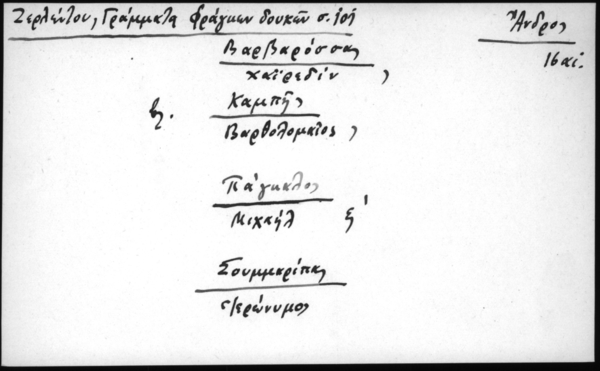 Ζερλέντου, Γράμματα φράγκων δουκῶν σ. 101
Ἄνδρος
16 αἰ.
Βαρβαρόσσας
Χαϊρεδίν,
βλ. Χαμπῆς
Βαρθολομαῖος,
Πάγκαλος
Μιχαήλ ξ'
Σουμμαρίπας
Ἱερώνυμος